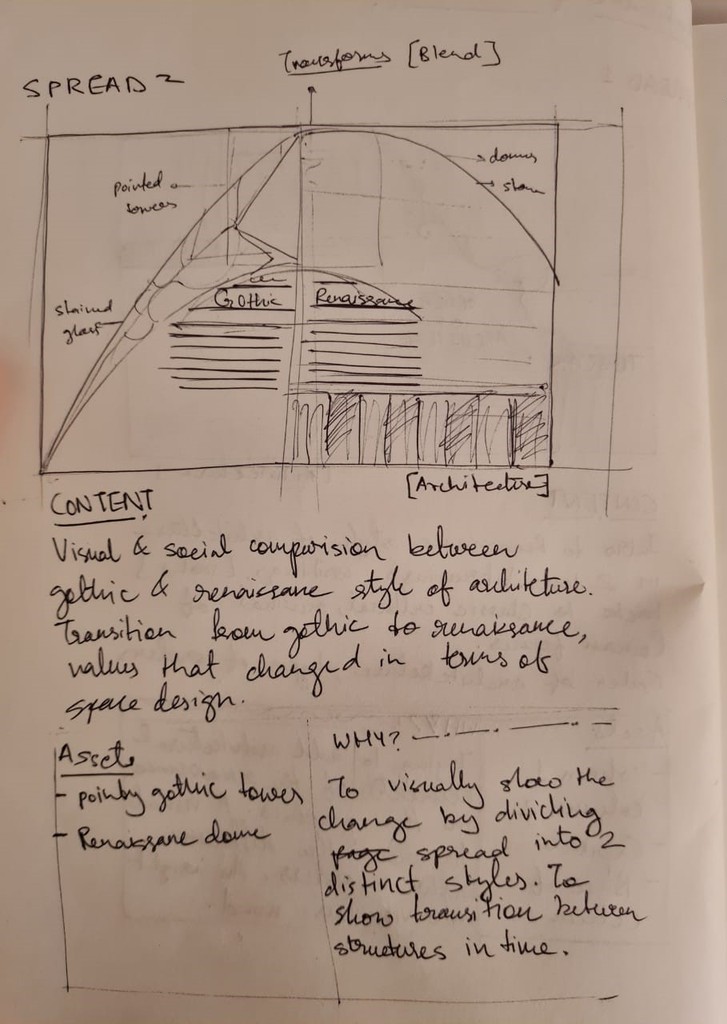 Transforms [Blend]
SPREAD 2
domes
pointed
towers
stained
glass
Gothic
Renaissance
[Architecture]
CONTENT
Visual & social comparision between
gothic & renaissane style of architeture.
Transition from gothic to renaissance,
values that changed in terms of
space design.
Assets
- pointy gothic towers
- Renaissane dome
WHY?
To visually show the
change by dividing
page spread into 2
distinct styles. To
show transition between
structures in time.